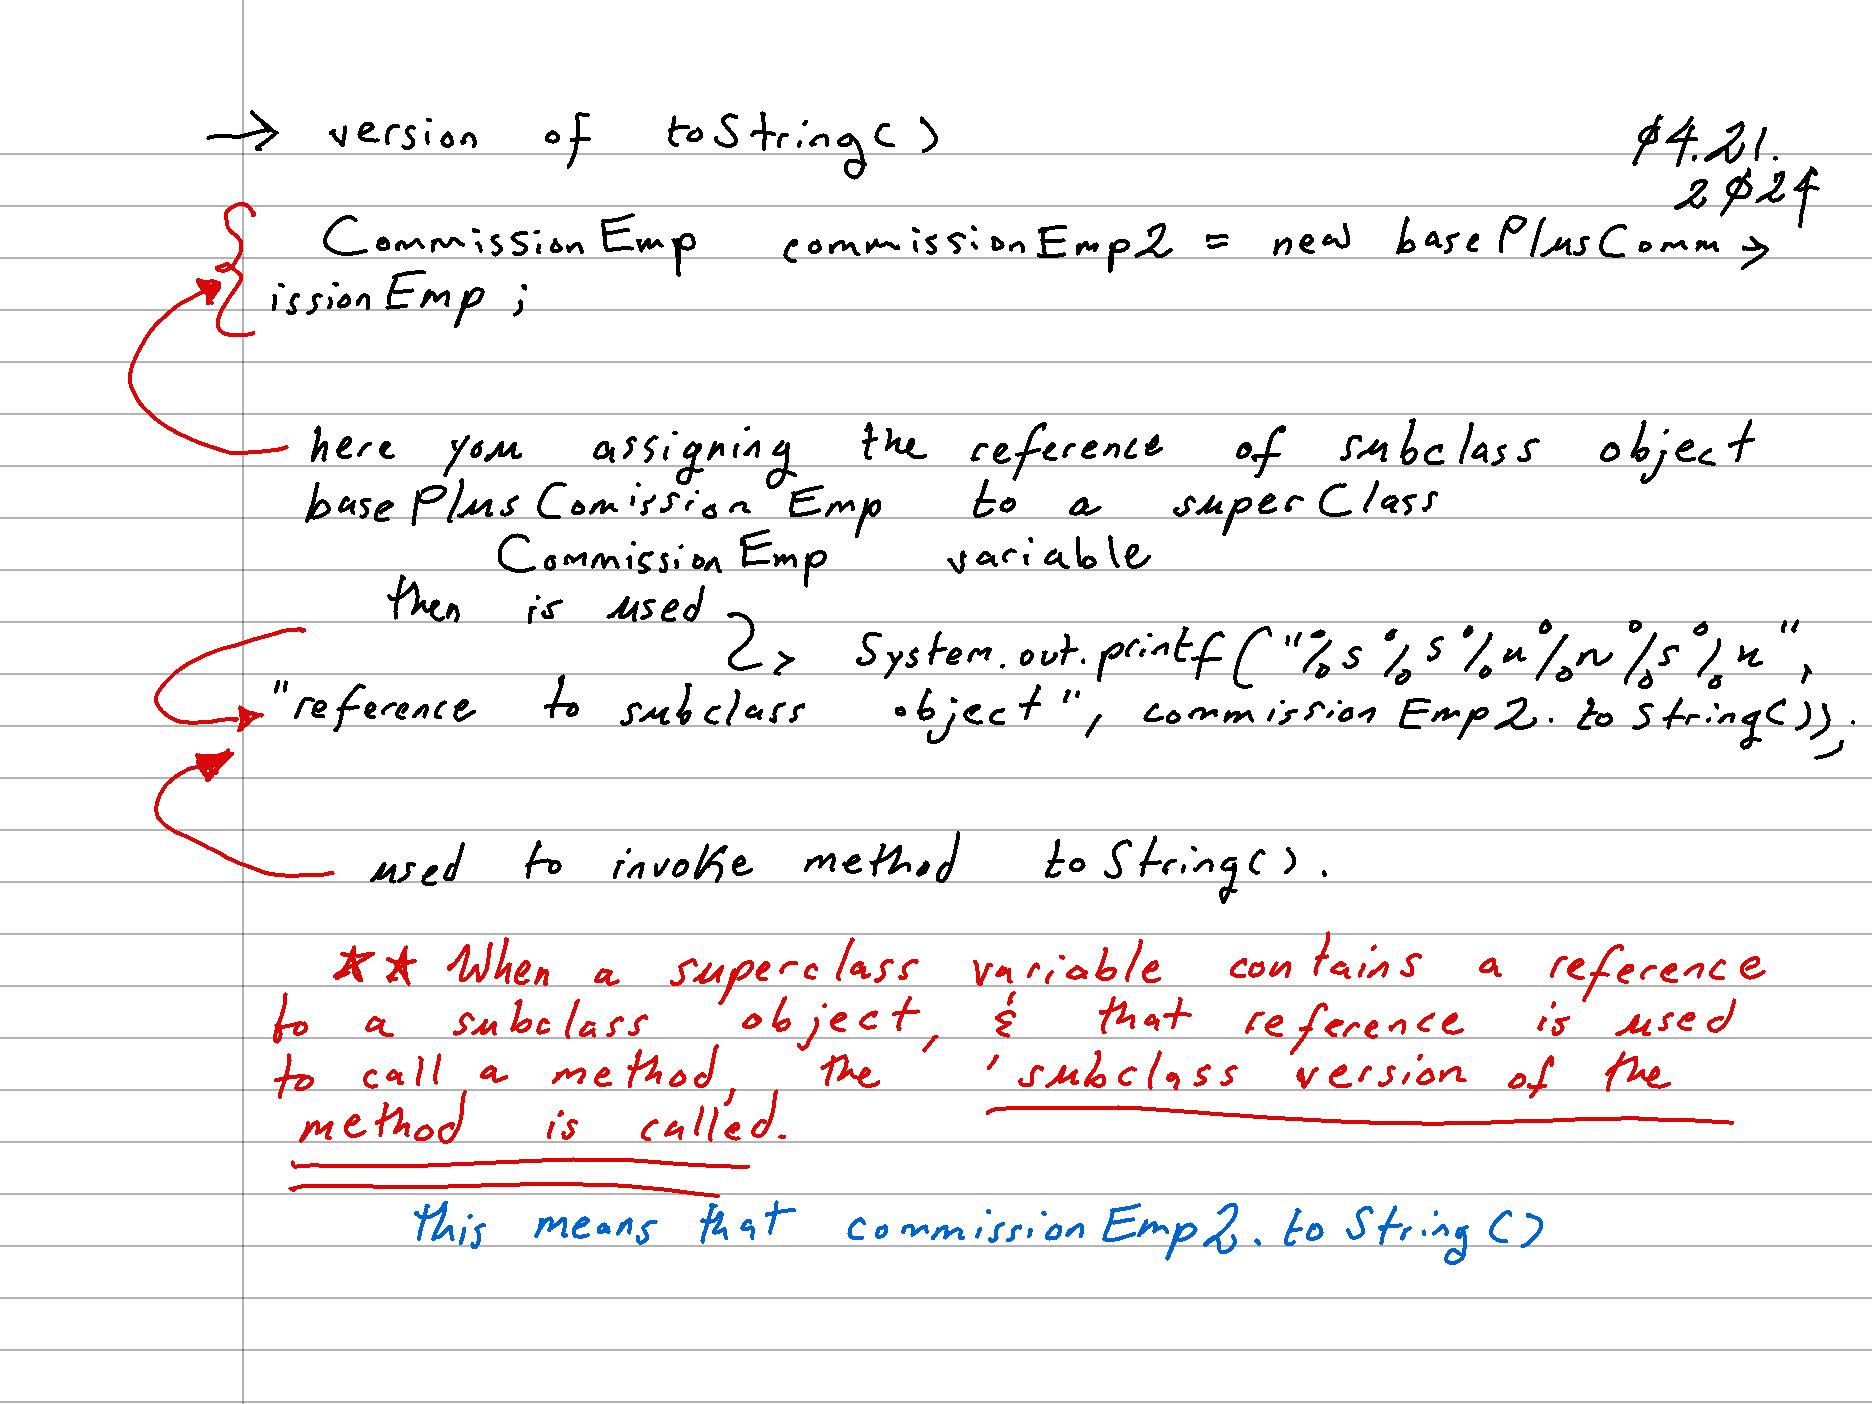 → version of toString()
04.21.
2024
CommissionEmp commissionEmp2 = new basePlusComm →
issionEmp ;
here you assigning the reference of subclass object
basePlusComissionEmp to a superClass
CommissionEmp variable
then is used
System.out.printf("%s%s%n%n%s%n",
"reference to subclass object", commissionEmp2.toString());
used to invoke method toString().
** When a superclass variable contains a reference
to a subclass object, & that reference is used
to call a method, the 'subclass version of the
method is called.
this means that commissionEmp2.toString()